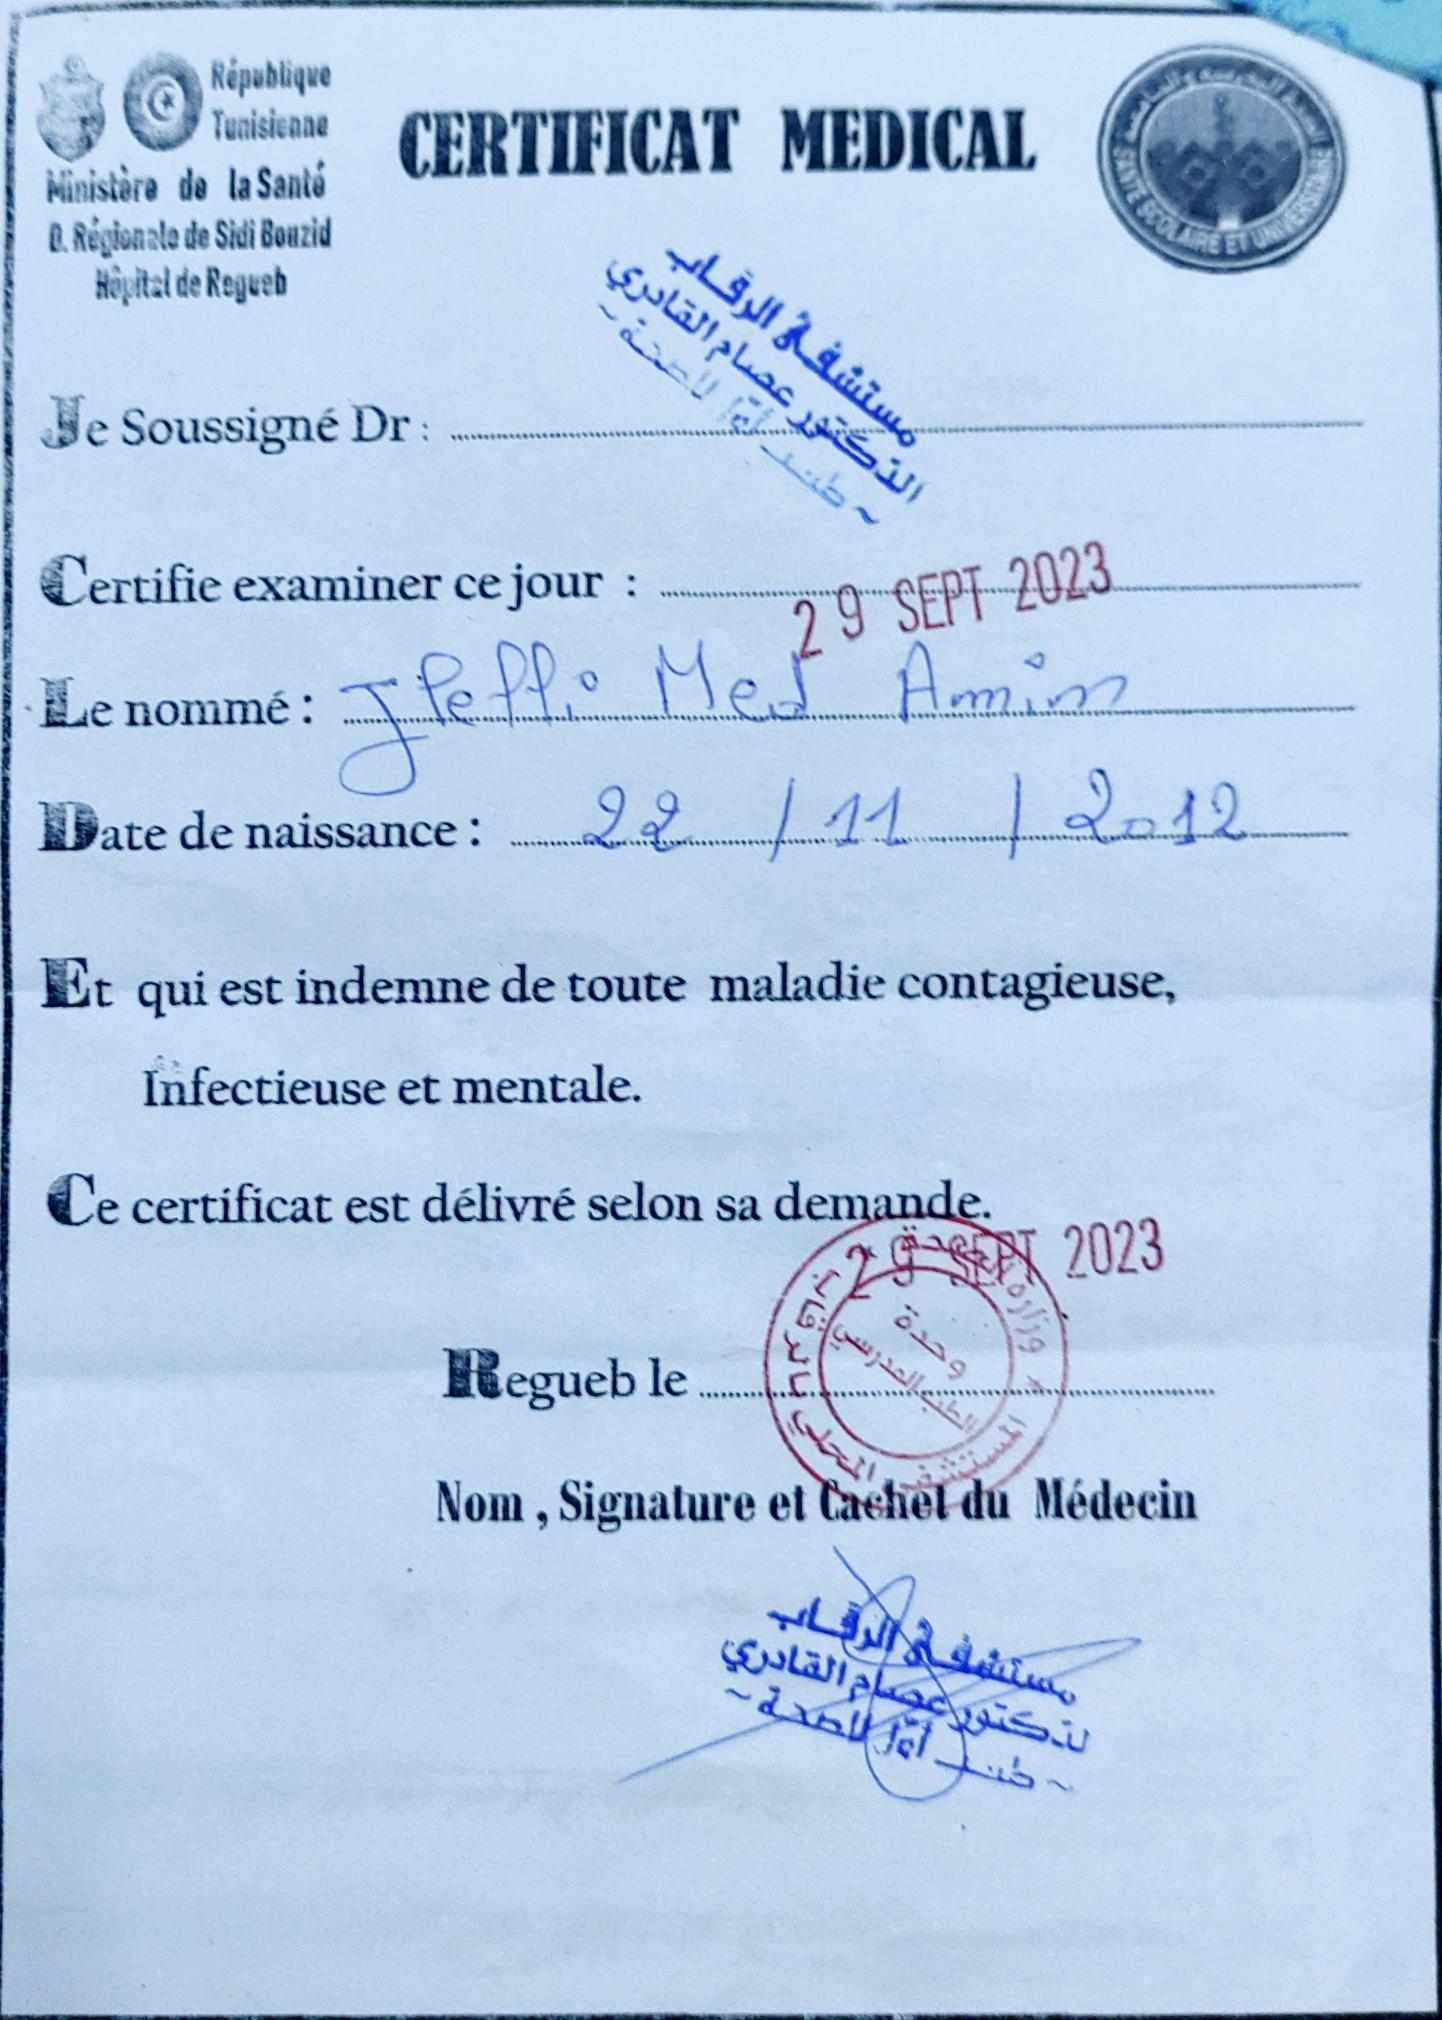 République
Tunisienne
Ministère de la Santé
D. Régionale de Sidi Bouzid
Hôpital de Regueb
CERTIFICAT MEDICAL
SANTE SCOLAIRE ET UNIVERSITAIRE
مستشفى الرقاب
الدكتور عصام القادري
Je Soussigné Dr :
Certifie examiner ce jour :
29 SEPT 2023
Le nommé : Jleffi Med Amin
Date de naissance : 22 / 11 / 2012
Et qui est indemne de toute maladie contagieuse,
Infectieuse et mentale.
Ce certificat est délivré selon sa demande.
29 SEPT 2023
وزارة الصحة
المستشفى المحلي بالرقاب
وحدة
الطب المدرسي
Regueb le
Nom , Signature et Cachet du Médecin
مستشفى الرقاب
لدكتور عصام القادري